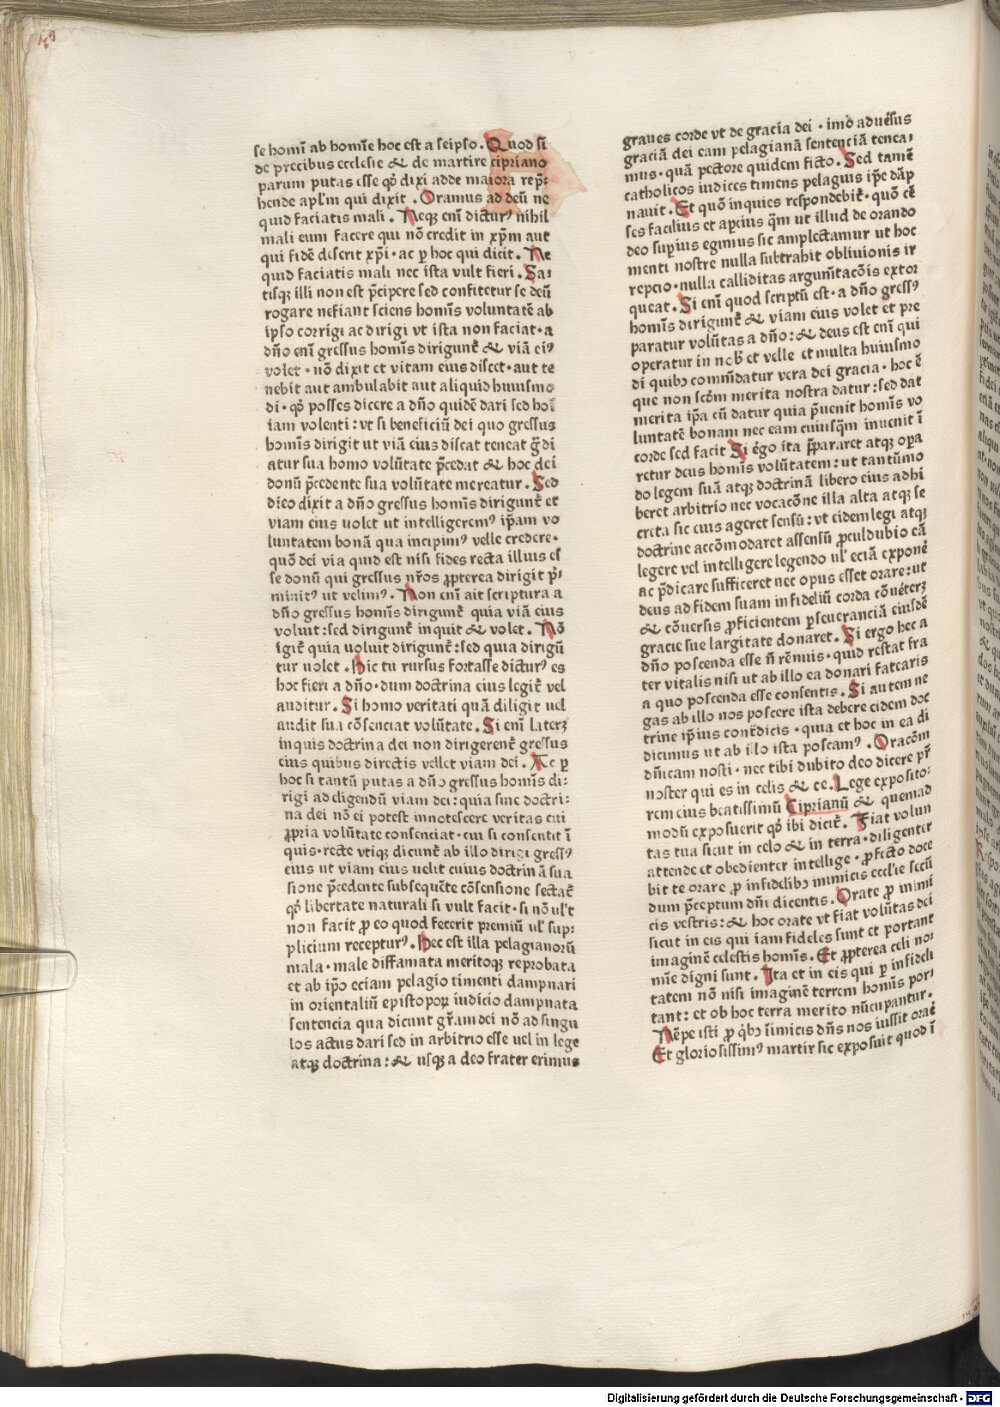 se homī ab homīe hoc est a seipso. Quod si
de precibus ecclesie & de martire cipriano
parum putas esse qđ dixi adde maiora rep̄:
hende apl̄m qui dixit. Oramus ad deū ne
quid faciatis mali. Neqꝫ enī dicturꝰ nihil
mali eum facere qui nō credit in xp̄m aut
qui fidē deserit xp̄i· ac ꝑ hoc qui dicit. Ne
quid faciatis mali nec ista vult fieri. Sa:
tisqꝫ illi non est p̄cipere sed confitetur se deū
rogare nefiant sciens homīs voluntatē ab
ipso corrigi ac dirigi vt ista non faciat· a
dn̄o enī gressus homīs dirigunt̄ & viā eiꝰ
volet· nō dixit et vitam eius discet· aut te
nebit aut ambulabit aut aliquid huiusmo
di· qđ posses dicere a dn̄o quidē dari sed hoī
iam volenti: vt si beneficiū dei quo gressus
homīs dirigit ut viā eius discat teneat ḡdi
atur sua homo volūtate p̄cedat & hoc dei
donū p̄cedente sua volūtate mereatur. Sed
dīceo dixit a dn̄o gressus homīs dirigunt̄ et
viam eius uolet ut intelligeremꝰ ip̄am vo
luntatem bonā qua incipimꝰ velle credere·
quō dei via quid est nisi fides recta illuis es
se donū qui gressus nr̄os ꝓpterea dirigit p̄i
minitꝰ ut velimꝰ. Non enī ait scriptura a
dn̄o gressus homīs dirigunt̄ quia viā eius
voluit: sed dirigunt̄ inquit & volet. Nō
igit̄ quia uoluit dirigunt̄: sed quia dirigū
tur uolet. Hic tu rursus fortasse dicturꝰ es
hoc fieri a dn̄o· dum doctrina eius legit̄ vel
auditur. Si homo veritati quā diligit uel
audit sua cōsenciat volūtate. Si enī laterꝫ
inquis doctrina dei non dirigerent̄ gressus
eius quibus directis vellet viam dei. Ac ꝑ
hoc si tantū putas a dn̄o gressus homīs di:
rigi ad eligendū viam dei: quia sine doctri:
na dei nō ei potest innotescere veritas cui
ꝓpria volūtate consenciat· cui si consentit ī
quis· recte vtiqꝫ dicunt̄ ab illo dirigi gressꝰ
eius ut viam eius uelit cuius doctrinā sua
sione p̄cedente subsequēte cōsensione sectat̄
qđ libertate naturali si vult facit· si nō ul't
non facit ꝓ eo quod fecerit premiū ul' sup:
plicium recepturꝰ. Hec est illa pelagianorū
mala· male diffamata meritoqꝫ reprobata
et ab ip̄o eciam pelagio timenti dampnari
in orientaliū episcopoꝝ iudicio dampnata
sentencia qua dicunt gr̄am dei nō ad singu
los actus dari sed in arbitrio esse uel in lege
atqꝫ doctrina: & usqꝫ a deo frater erimus
graues corde vt de gracia dei· imō aduēsus
graciā dei eam pelagianā sentenciā tenea:
mus· quā pectore quidem ficto. Sed tamē
catholicos iudices timens pelagius ip̄e dāp
nauit. Et quō inquies respondebit̄· quō eē
ses facilius et apcius qm̄ ut illud de orando
deo supius egimus sic amplectamur ut hoc
menti nostre nulla subtrahit obliuionis ir
repcio· nulla calliditas argum̄tacōis extor
queat. Si enī quod scriptū est· a dn̄o gressꝰ
homīs dirigunt̄ & viam eius volet et pre
paratur volūtas a dn̄o: & deus est enī qui
operatur in nob̄ et velle et multa huiusmo
di quibꝫ comm̄datur vera dei gracia· hoc ē
que non scđm merita nostra datur: sed dat
merita ip̄a cū datur quia p̄uenit homīs vo
luntatē bonam nec eam cuiusqm̄ inuenit ī
corde sed facit Si ēgo ita p̄pararet atqꝫ opa
retur deus homīs volūtatem: ut tantūmo
do legem suā atqꝫ doctrinā libero eius adhi
beret arbitrio nec vocacōne illa alta atqꝫ se
creta sic eius ageret sensū: vt eidem legi atqꝫ
doctrine accōmodaret assensū ꝓculdubio eā
legere vel intelligere legendo ul' eciā exponē
ac p̄dicare sufficeret nec opus esset orare: ut
deus ad fidem suam infideliū corda cōuēterꝫ
& cōuersis ꝓficientem ꝑseueranciā eiusdē
gracie sue largitate donaret. Si ergo hec a
dn̄o poscenda esse n̄ rēnuis· quid restat fra
ter vitalis nisi ut ab illo ea donari fatearis
a quo poscenda esse consentis. Si autem ne
gas ab illo nos poscere ista debere eidem doc
trine ip̄ius cont̄dicis· quia et hoc in ea di
dicimus ut ab illo ista poscamꝰ. Oracōm
dn̄icam nosti· nec tibi dubito deo dicere pr̄
noster qui es in celis & ce. Lege exposito:
rem eius beatissimū Ciprianū & quemad
modū exposuerit qđ ibi dicit̄. Fiat volun
tas tua sicut in celo & in terra· diligenter
attende et obedienter intellige· ꝓfecto doce
bit te orare ꝓ infidelibꝫ inimicis eccl'ie scd'ū
dum p̄ceptum dn̄i dicentis. Orate ꝓ inimī
cis vestris: & hoc orate vt fiat volūtas dei
sicut in eis qui iam fideles sunt et portant
imaginē celestis homīs. Et ꝓpterea celi no:
mīe digni sunt. Ita et in eis qui ꝑ infideli
tatem nō nisi imaginē terrem homīs por:
tant: et ob hoc terra merito nūcupantur.
Nēpe isti ꝓ q̄bꝫ īimicis dn̄s nos iussit oraē
Et gloriosissimꝰ martir sic exposuit quod ī
Digitalisierung gefördert durch die Deutsche Forschungsgemeinschaft - DFG